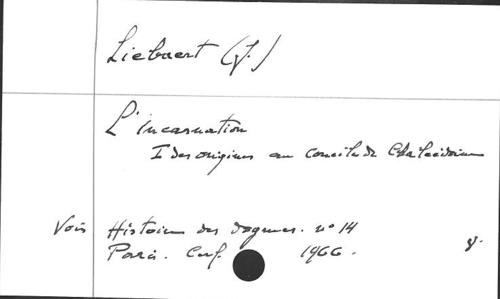 Liebaert (J.)
L'incarnation
I des origines au concile de Chalcédoine
Voir Histoire des dogmes. n° 14
Paris. Cerf. 1966.
8.